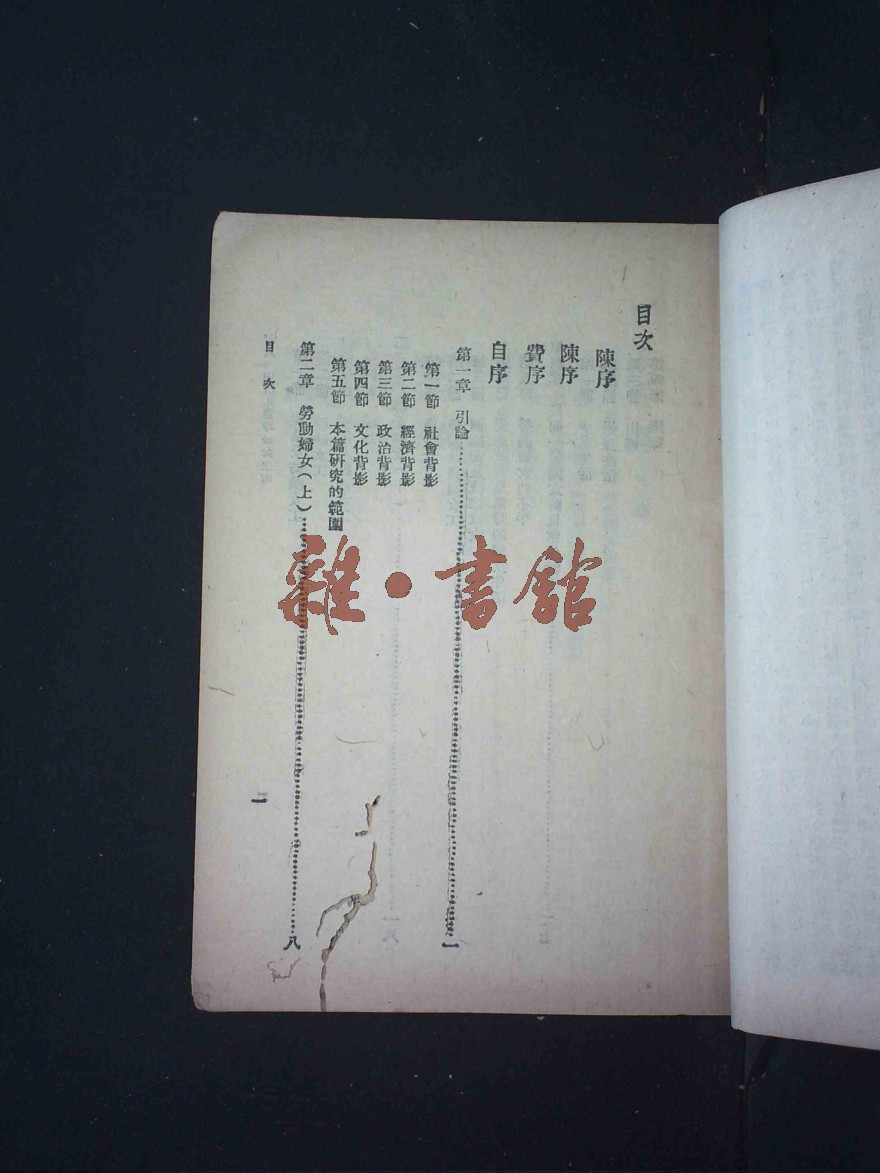 目次
陳序
陳序
費序
自序
第一章 引論……一
第一節 社會背影
第二節 經濟背影
第三節 政治背影
第四節 文化背影
第五節 本篇研究的範圍
第二章 勞動婦女(上)……八
目次
雜·書舘